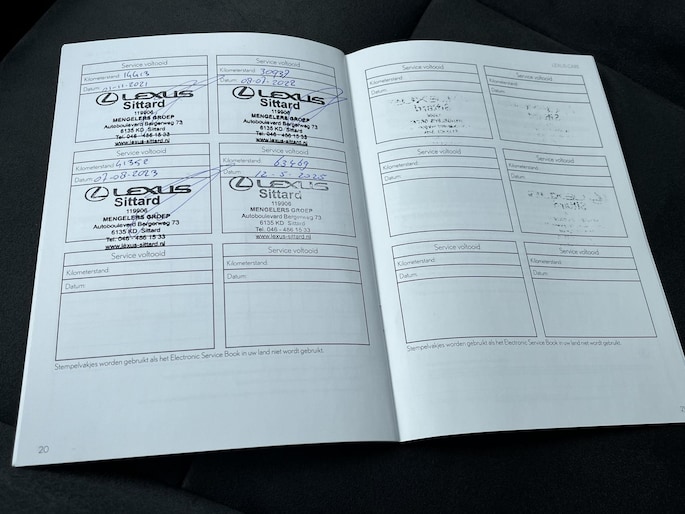 Service voltooid
Kilometerstand: 14413
Datum: -11-2021
LEXUS
Sittard
119906
MENGELERS GROEP
Autoboulevard Bergerweg 73
6135 KD Sittard
Tel. 046 - 456 15 33
www.lexus-sittard.nl
Service voltooid
Kilometerstand: 30937
Datum: 08-07-2022
LEXUS
Sittard
119906
MENGELERS GROEP
Autoboulevard Bergerweg 73
6135 KD Sittard
Tel. 046 - 456 15 33
www.lexus-sittard.nl
Service voltooid
Kilometerstand: 41352
Datum: 07-08-2023
LEXUS
Sittard
119906
MENGELERS GROEP
Autoboulevard Bergerweg 73
6135 KD Sittard
Tel. 046 - 456 15 33
www.lexus-sittard.nl
Service voltooid
Kilometerstand: 63469
Datum: 12-5-2025
LEXUS
Sittard
119906
MENGELERS GROEP
Autoboulevard Bergerweg 73
6135 KD Sittard
Tel. 046 - 456 15 33
www.lexus-sittard.nl
Service voltooid
Kilometerstand:
Datum:
Service voltooid
Kilometerstand:
Datum:
Stempelvakjes worden gebruikt als het Electronic Service Book in uw land niet wordt gebruikt.
20
Service voltooid
Kilometerstand:
Datum:
Service voltooid
Kilometerstand:
Datum:
Service voltooid
Kilometerstand:
Datum:
Service voltooid
Kilometerstand:
Datum:
Service voltooid
Kilometerstand:
Datum:
Service voltooid
Kilometerstand:
Datum:
Stempelvakjes worden gebruikt als het Electronic Service Book in uw land niet wordt gebruikt.